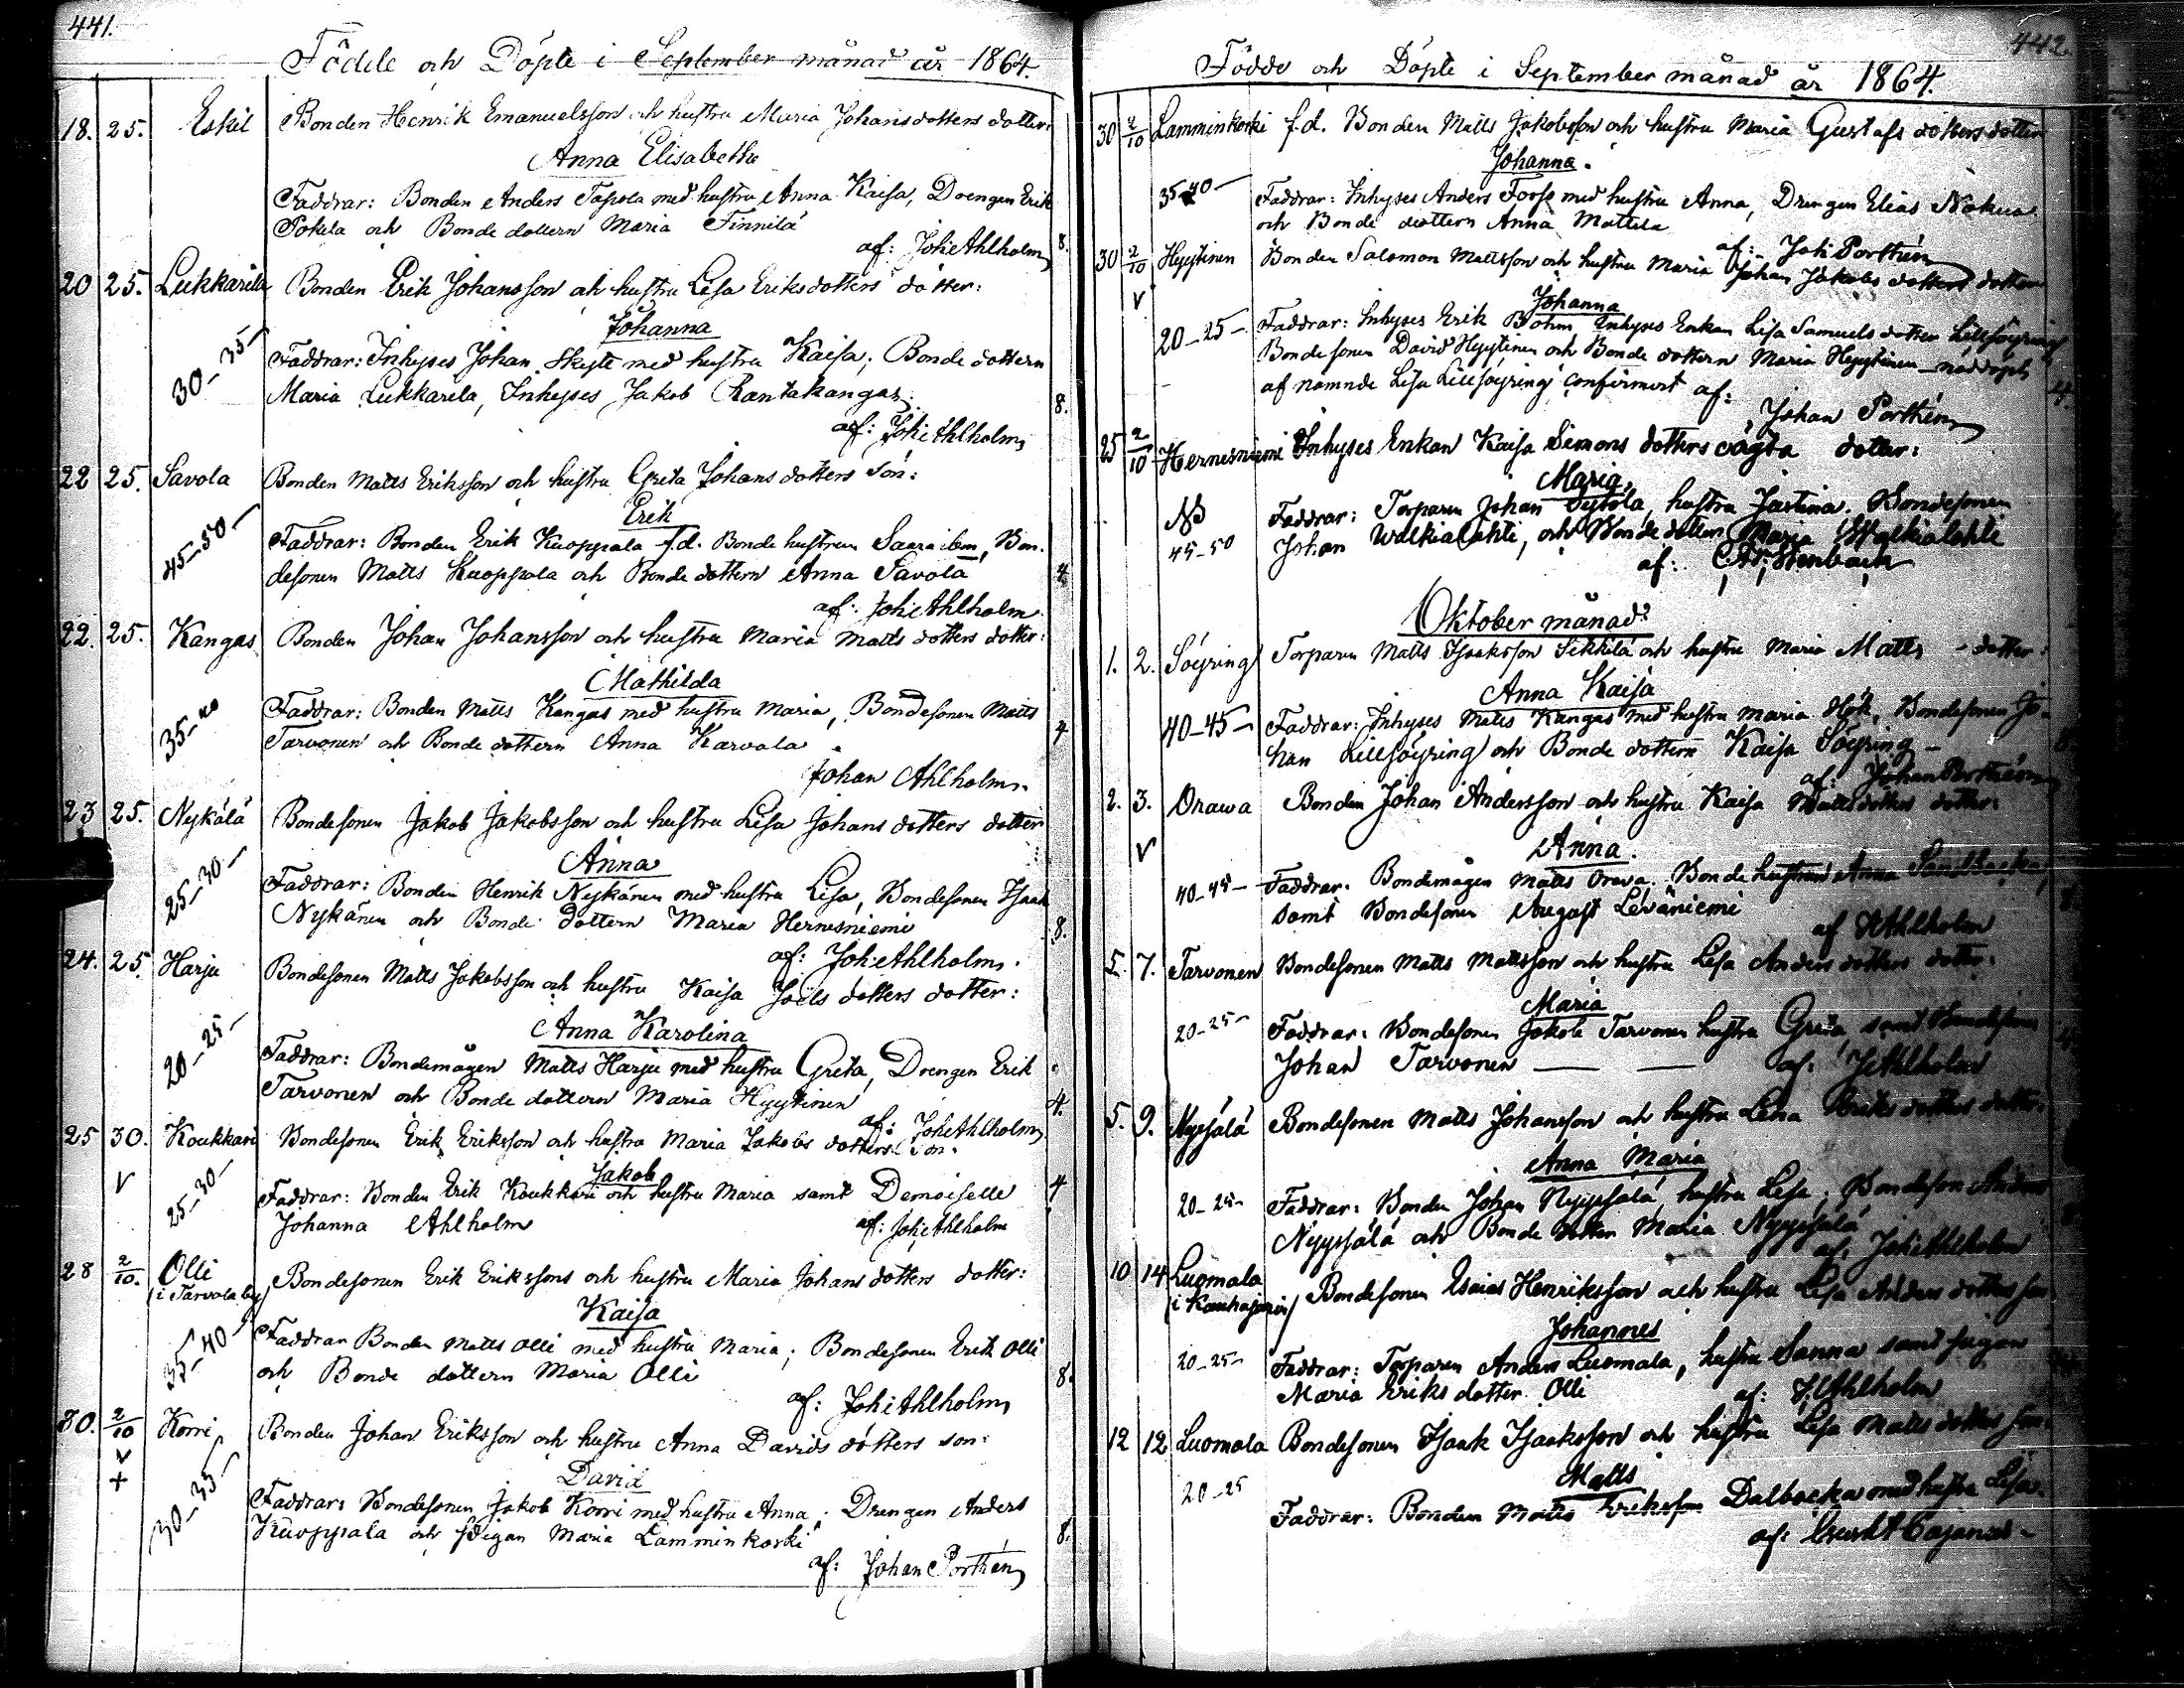 441.
Födde och Döpte i September månad år 1864.
18. 25. Eskil Bonden Henrik Emanuelsson och hustru Maria Johansdotters dotter:
Anna Elisabetha
Faddrar: Bonden Anders Tapola med hustru Anna Kaisa, Drengen Erik
Pokela och Bonde dottern Maria Finnilä
af: Joh: Ahlholm 8.
20 25. Lukkarila Bonden Erik Johansson och hustru Lisa Eriksdotters dotter:
Johanna
30-35 Faddrar: Inhyses Johan Skytt med hustru Kaisa; Bonde dottern
Maria Lukkarila, Inhyses Jakob Rantakangas. 8.
af: Joh: Ahlholm
22 25. Savola Bonden Matts Eriksson och hustru Greta Johans dotters Son:
Erik
45-50 Faddrar: Bonden Erik Kuoppala f.d. Bonde hustrun Saara ibm, Bon-
desonen Matts Kuoppala och Bonde dottern Anna Savola 4
af: Joh: Ahlholm
22. 25. Kangas Bonden Johan Johansson och hustru Maria Matts dotters dotter:
Mathilda
35-40 Faddrar: Bonden Matts Kangas med hustru Maria, Bondesonen Matts
Tarvonen och Bonde dottern Anna Karvala 4
Johan Ahlholm.
23 25. Nykälä Bondesonen Jakob Jakobsson och hustru Lisa Johans dotters dotter
Anna
25-30 Faddrar: Bonden Henrik Nykänen med hustru Lisa, Bondesonen Isaak
Nykänen och Bonde dottern Maria Hernesniemi 8.
af: Joh: Ahlholm.
24. 25. Harju Bondesonen Matts Jakobsson och hustru Kaisa Joels dotters dotter:
Anna Karolina
20-25 Faddrar: Bondemågen Matts Harju med hustru Greta, Drengen Erik
Tarvonen och Bonde dottern Maria Hyytinen 4.
af: Joh: Ahlholm
25 30. Koukkari Bondesonen Erik Eriksson och hustru Maria Jakobs dotters Son:
V Jakob
25-30 Faddrar: Bonden Erik Koukkari och hustru Maria samt Demoiselle 4
Johanna Ahlholm af: Joh: Ahlholm
28 2/10. Olli Bondesonen Erik Erikssons och hustru Maria Johans dotters dotter:
i Tarvola by
Kaisa
35-40 Faddrar Bonden Matts Olli med hustru Maria; Bondesonen Erik Olli
och Bonde dottern Maria Olli 8.
af: Joh: Ahlholm
30. 2/10 Korri Bonden Johan Eriksson och hustru Anna Davids dotters son:
V
+ David
30-35 Faddrar: Bondesonen Jakob Korri med hustru Anna; Drengen Anders
Kuoppala och Pigan Maria Lamminkoski 8.
af: Johan Porthén
442.
Födde och Döpte i September månad år 1864.
30 2/10 Lamminkoski f.d. Bonden Matts Jakobsson och hustru Maria Gustafs dotters dotter
Johanna.
35-40 Faddrar: Inhyses Anders Forss med hustru Anna, Drengen Elias Nokua
och Bonde dottern Anna Mattila
af: Joh: Porthén
30 2/10 Hyytinen Bonden Salomon Mattsson och hustru Maria Johan Jakobs dotters dotter
V Johanna
20-25 Faddrar: Inhyses Erik Bohm, Inhyses Enkan Lisa Samuels dotter Lillsöyring
Bondesonen David Hyytinen och Bonde dottern Maria Hyytinen nöddöpt
af nämnde Lisa Lillsöyring, Confirmert af: 4.
Johan Porthén
25 2/10 Hernesniemi Inhyses Enkan Kaisa Simons dotters oägta dotter:
Maria,
NB Faddrar: Torparen Johan Sytola, hustru Justina. Bondesonen
45-50 Johan Walkialahti, och Bonde dottern Maria Walkialahti
af: Stenbäck
Oktober månad:
1. 2. Söyring Torparen Matts Isaksson Sikkilä och hustru Maria Matts - dotter:
Anna Kaisa
40-45 Faddrar: Inhyses Matts Kangas med hustru Maria Hök, Bondesonen Jo-
han Lillsöyring och Bonde dottern Kaisa Söyring - 8
af: Johan Porthén
2. 3. Orawa Bonden Johan Andersson och hustru Kaisa Matts dotters dotter:
V Anna.
40-45 Faddrar. Bondemågen Matts Orava. Bonde hustrun Anna Sandbacka,
samt Bondesonen August Leväniemi 8.
af Ahlholm
5. 7. Tarvonen Bondesonen Matts Mattsson och hustru Lisa Anders dotters dotter:
Maria
20-25 Faddrar: Bondesonen Jakob Tarvonen hustru Greta, samt Bondesonen
Johan Tarvonen af: J Ahlholm
5. 9. Nyysälä Bondesonen Matts Johansson och hustru Lena Eriks dotters dotter:
Anna Maria
20-25 Faddrar: Bonden Johan Nyyssälä hustru Lisa; Bondeson Anders
Nyyssälä och Bonde dotter Maria Nyyssälä
af: Joh: Ahlholm
10 14 Luomala Bondesonen Esaias Henriksson och hustru Lisa Anders dotters son
i Kauhajärvi
Johannes
20-25 Faddrar: Torparen Anders Luomala, hustru Sanna samt pigan
Maria Eriks dotter Olli af: J. Ahlholm
12 12 Luomala Bondesonen Isaak Isaaksson och hustru Lisa Matts dotters son
20-25 Matts
Faddrar: Bonden Matts Eriksson Dalbacka med hustru Lisa.
af: Cajanus